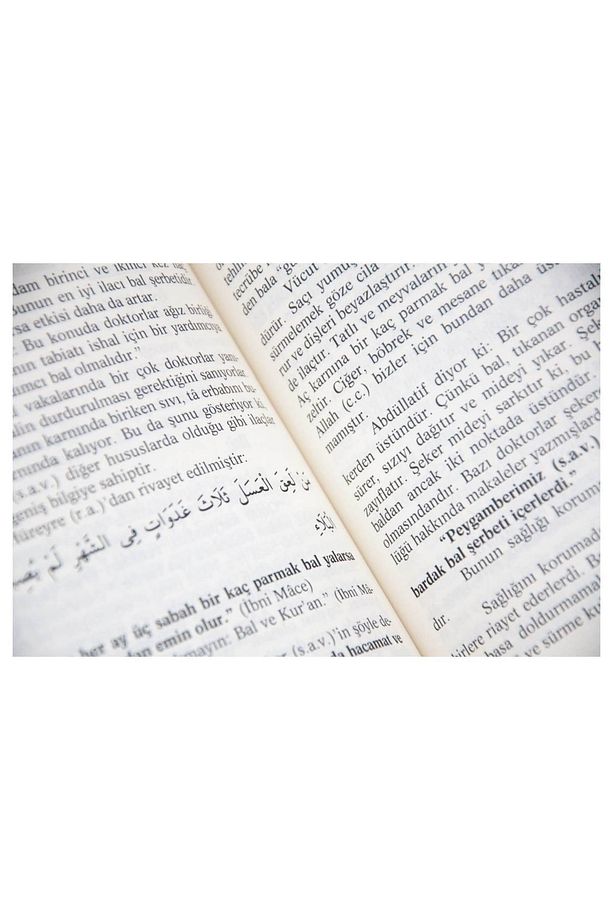 dam birinci ve ikinci kez
bunun en iyi ilacı bal şerbetidir.
rsa etkisi daha da artar.
. Bu konuda doktorlar ağız birliği
nın tabiatı ishal için bir yardımcıya
ımcı bal olmalıdır."
i vakalarında bir çok doktorlar yanı-
dilin durdurulması gerektiğini sanıyorlar.
anın karnında biriken sıvı, tâ erbabını bu-
rnında kalıyor. Bu da şunu gösteriyor ki,
(s.a.v.) diğer hususlarda olduğu gibi ilaçlar
geniş bilgiye sahiptir.
üreyre (r.a.)'dan rivayet edilmiştir:
مَنْ لَعِقَ الْعَسَلَ ثَلَاثَ غَدَوَاتٍ فِى الشَّهْرِ لَمْ
الْبَلَاءِ
her ay üç sabah bir kaç parmak bal yalarsa
dan emin olur." (İbni Mâce)
mayın: Bal ve Kur'an." (İbni Mâ-
(s.a.v.)'in şöyle de-
da hacamat ve
tecrübe
den bala
Vücut
dürür. Saçı yumuş
sürmelemek göze cila
rur ve dişleri beyazlaştırır.
de ilaçtır. Tatlı ve meyvaların
Aç karnına bir kaç parmak bal
zeltir. Ciğer, böbrek ve mesane tıka
Allah (c.c.) bizler için bundan daha üst
mamıştır.
Abdüllatif diyor ki: Bir çok hastal
kerden üstündür. Çünkü bal, tıkanan organ
sürer, sızıyı dağıtır ve mideyi yıkar. Şeke
zayıflatır. Şeker mideyi sarkıtır ki, bu
baldan ancak iki noktada üstündür.
olmasındandır. Bazı doktorlar şekere
lüğü hakkında makaleler yazmışlarda
"Peygamberimiz (s.a.v.)
bardak bal şerbeti içerlerdi."
Bunun sağlığı korum
dır.
Sağlığını korumad
birlere riayet ederlerdi. B
basa doldurmamak
ve sürme ku